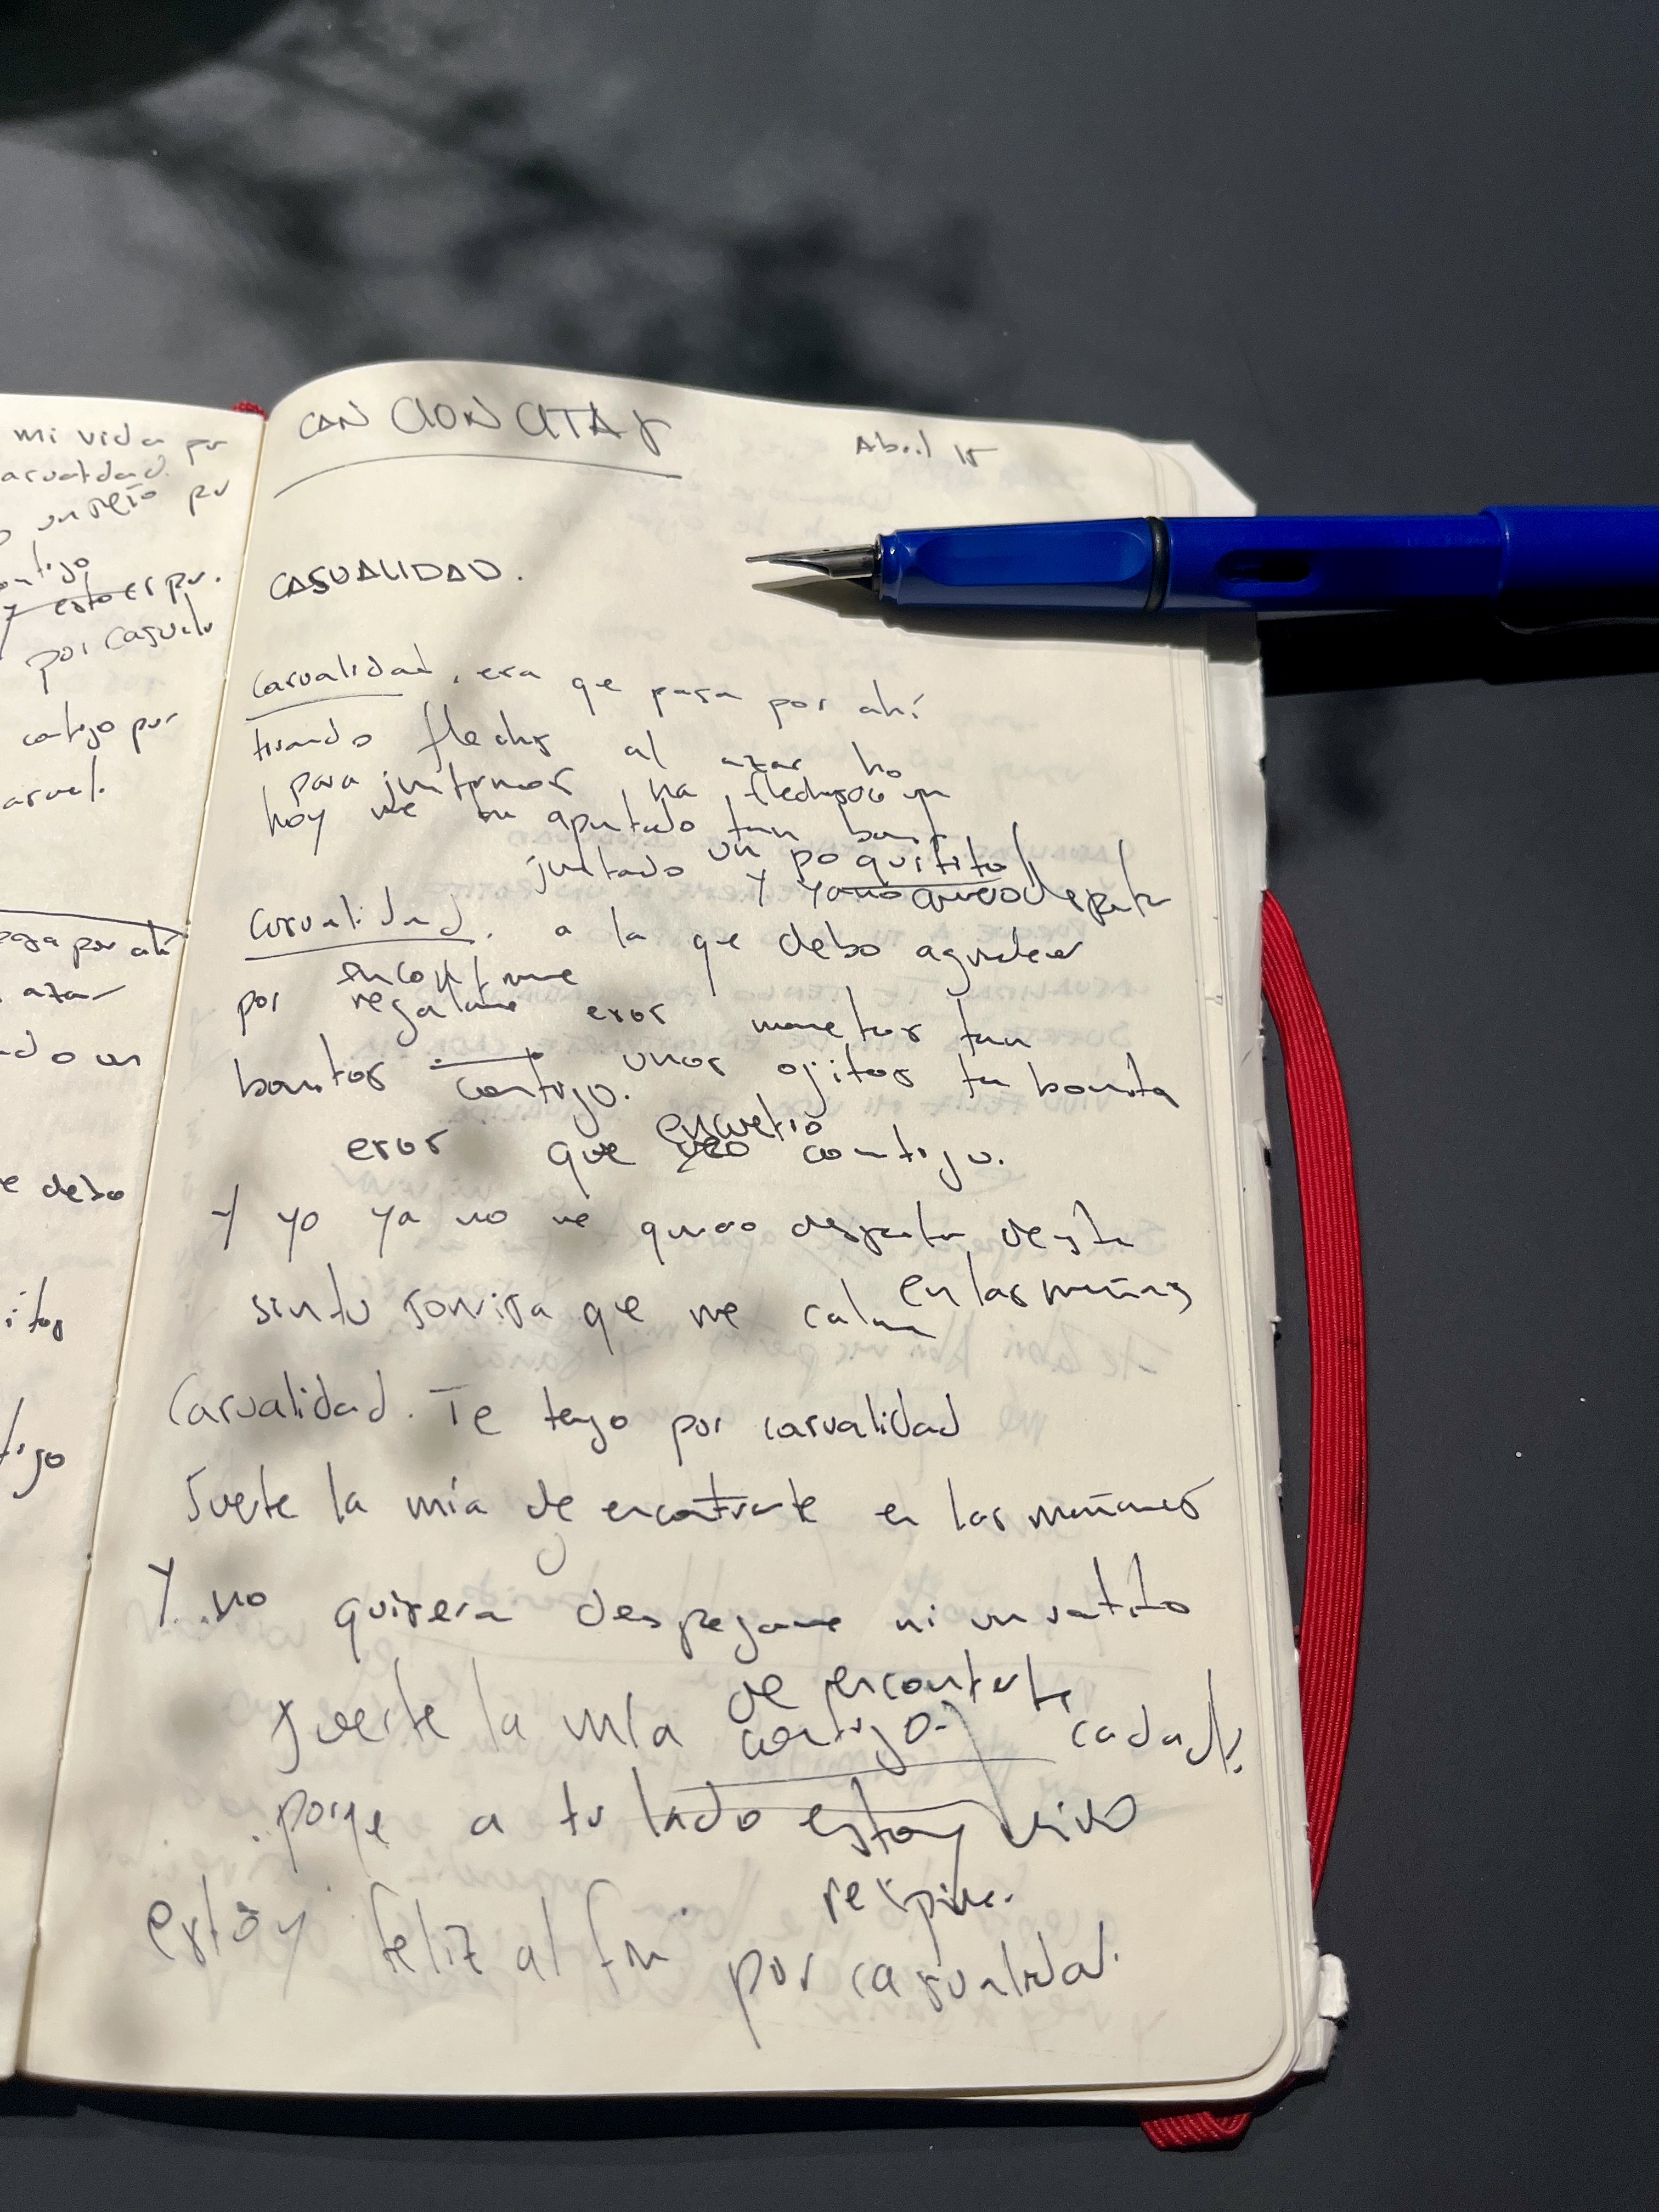 mi vida por
casualdad.
un ratito por
contigo
y esto es por.
por casuali
contigo por
casual.
pasa por ahí
azar
ado un
e debo
itos
tigo
CANCIONCITAS
Abril 15
CASUALIDAD.
Casualidad, esa que pasa por ahí
tirando flechas al azar ha
para juntarnos, ha flechado un
hoy me ha apuntado tan bonit
juntado un poquitito
y ya no quiero despertar
Casualidad, a la que debo agradecer
encontrarme
por regalarme esos momentos tan
bonitos contigo. unos ojitos tan bonita
esos que veo encuentro contigo.
Y yo ya no me quiero despertar
sin tu sonrisa que me calma en las mañanas
Casualidad. Te tengo por casualidad
Suerte la mía de encontrarte en las mañanas
Y no quisiera despegarme ni un ratito
suerte la mía contigo. de encontrarte cada día
porque a tu lado estoy vivo
respiro.
estoy feliz al fin por casualidad.